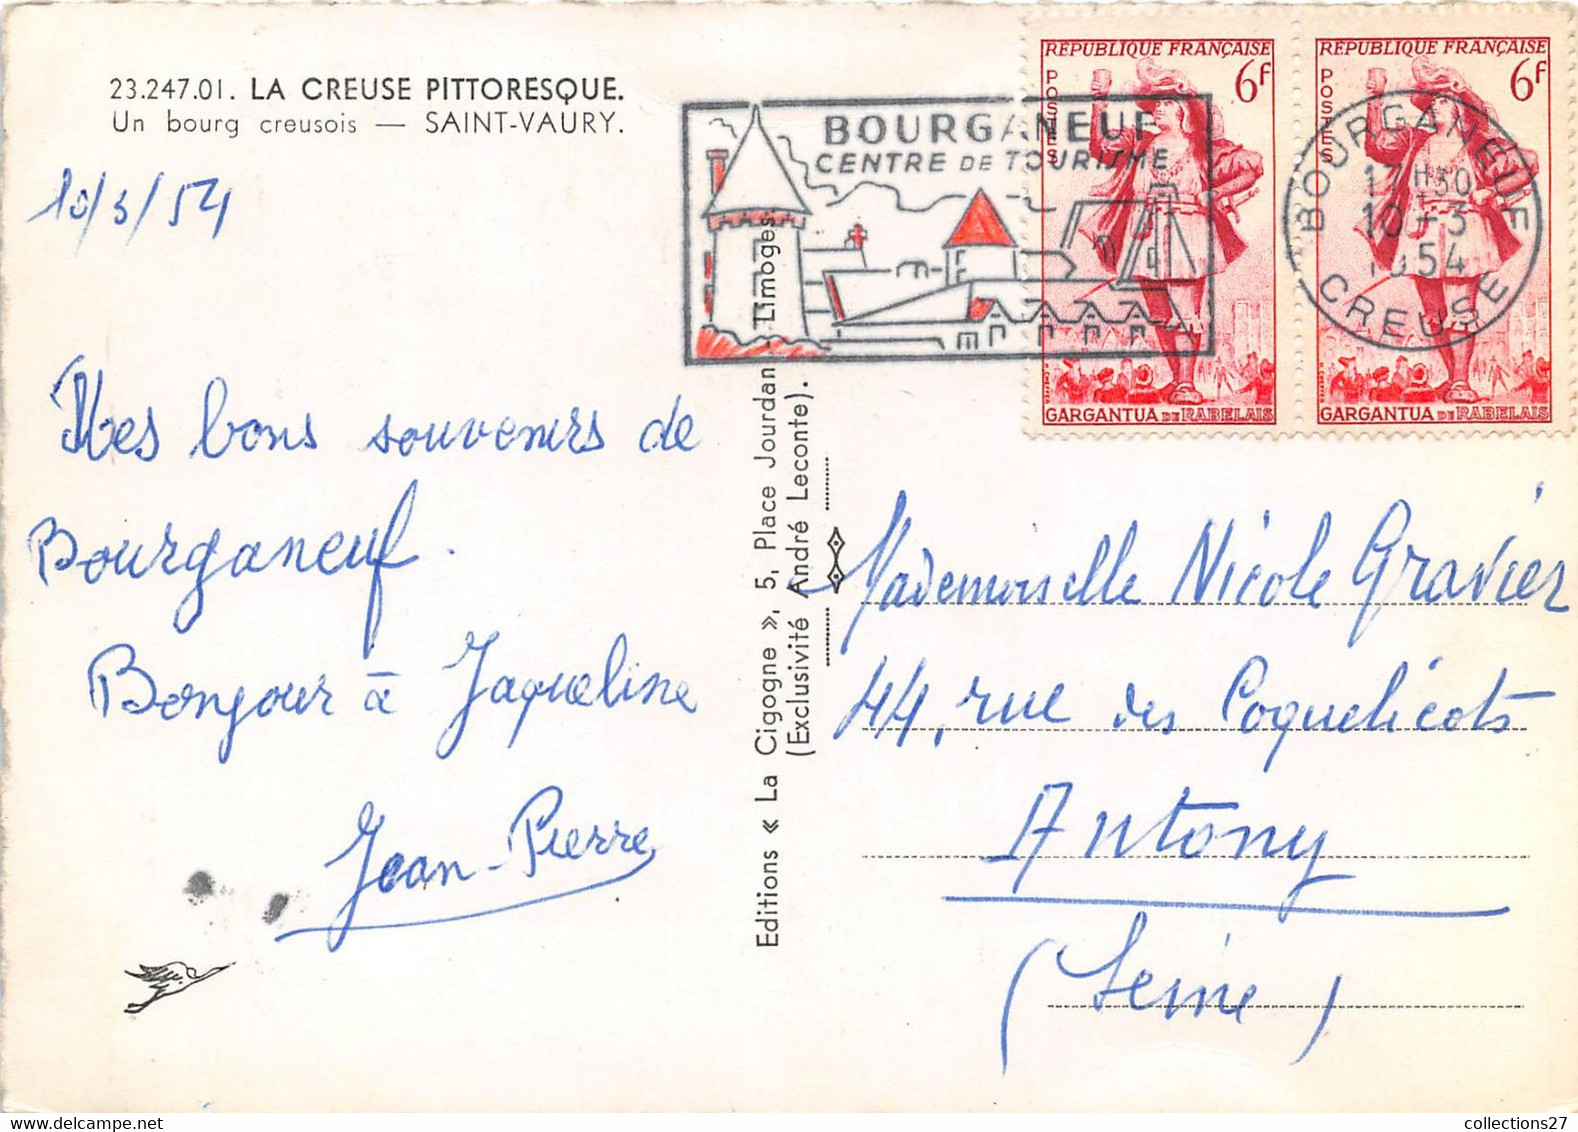 23.247.01. LA CREUSE PITTORESQUE.
Un bourg creusois — SAINT-VAURY.
10/3/54
Mes bons souvenirs de
Bourganeuf.
Bonjour à Jaqueline
Jean-Pierre
Editions « La Cigogne », 5, Place Jourdan Limoges
(Exclusivité André Leconte).
BOURGANEUF
CENTRE DE TOURISME
RÉPUBLIQUE FRANÇAISE
POSTES
6F
GARGANTUA DE RABELAIS
RÉPUBLIQUE FRANÇAISE
POSTES
6F
GARGANTUA DE RABELAIS
BOURGANEUF
17H30
10-3
1954
CREUSE
Mademoiselle Nicole Gravier
44, rue des Coquelicots
Antony
(Seine)
collections27